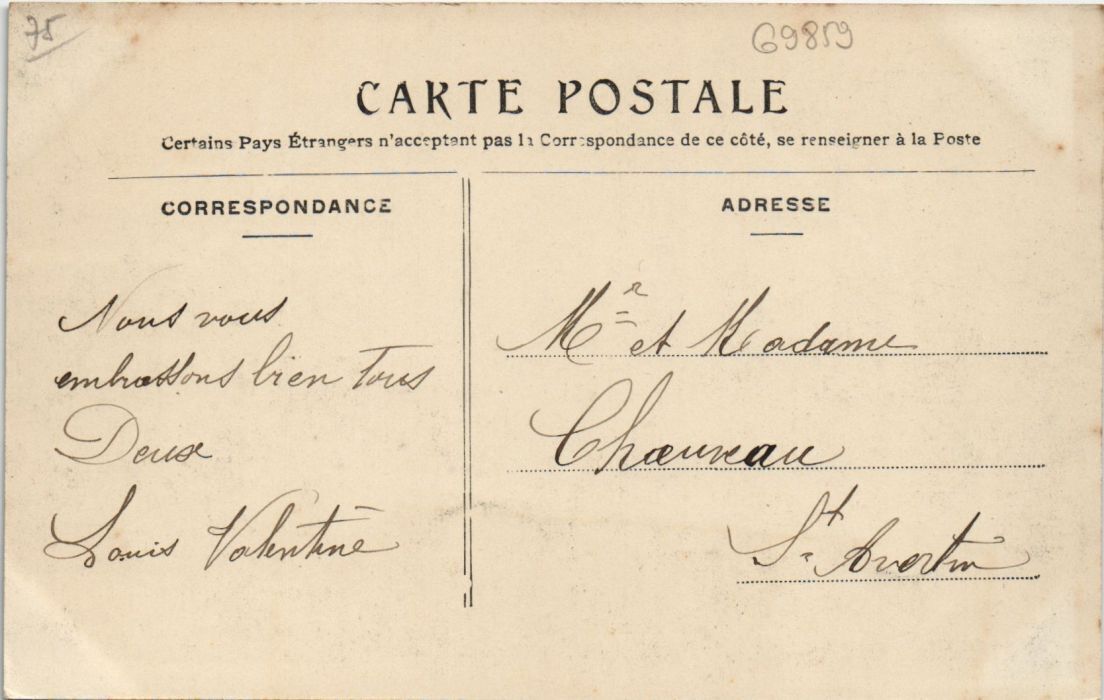 75
G9859
CARTE POSTALE
Certains Pays Étrangers n'acceptant pas la Correspondance de ce côté, se renseigner à la Poste
CORRESPONDANCE
Nous vous
embrassons bien Tous
Deux
Louis Valentine
ADRESSE
Mr et Madame
Chauveau
St Avertin